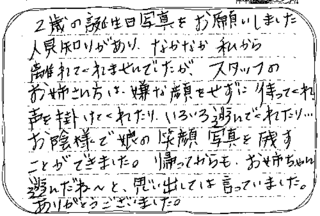 2歳の誕生日写真をお願いしました
人見知りがあり、なかなか私から
離れてくれませんでしたが、スタッフの
お姉さん方は、嫌な顔をせずに待ってくれ
声を掛けてくれたり、いろいろ遊んでくれたり…
お陰様で娘の笑顔写真を残す
ことができました。帰ってからも、お姉ちゃん
遊んだね〜と、思い出しては言っていました。
ありがとうございました。